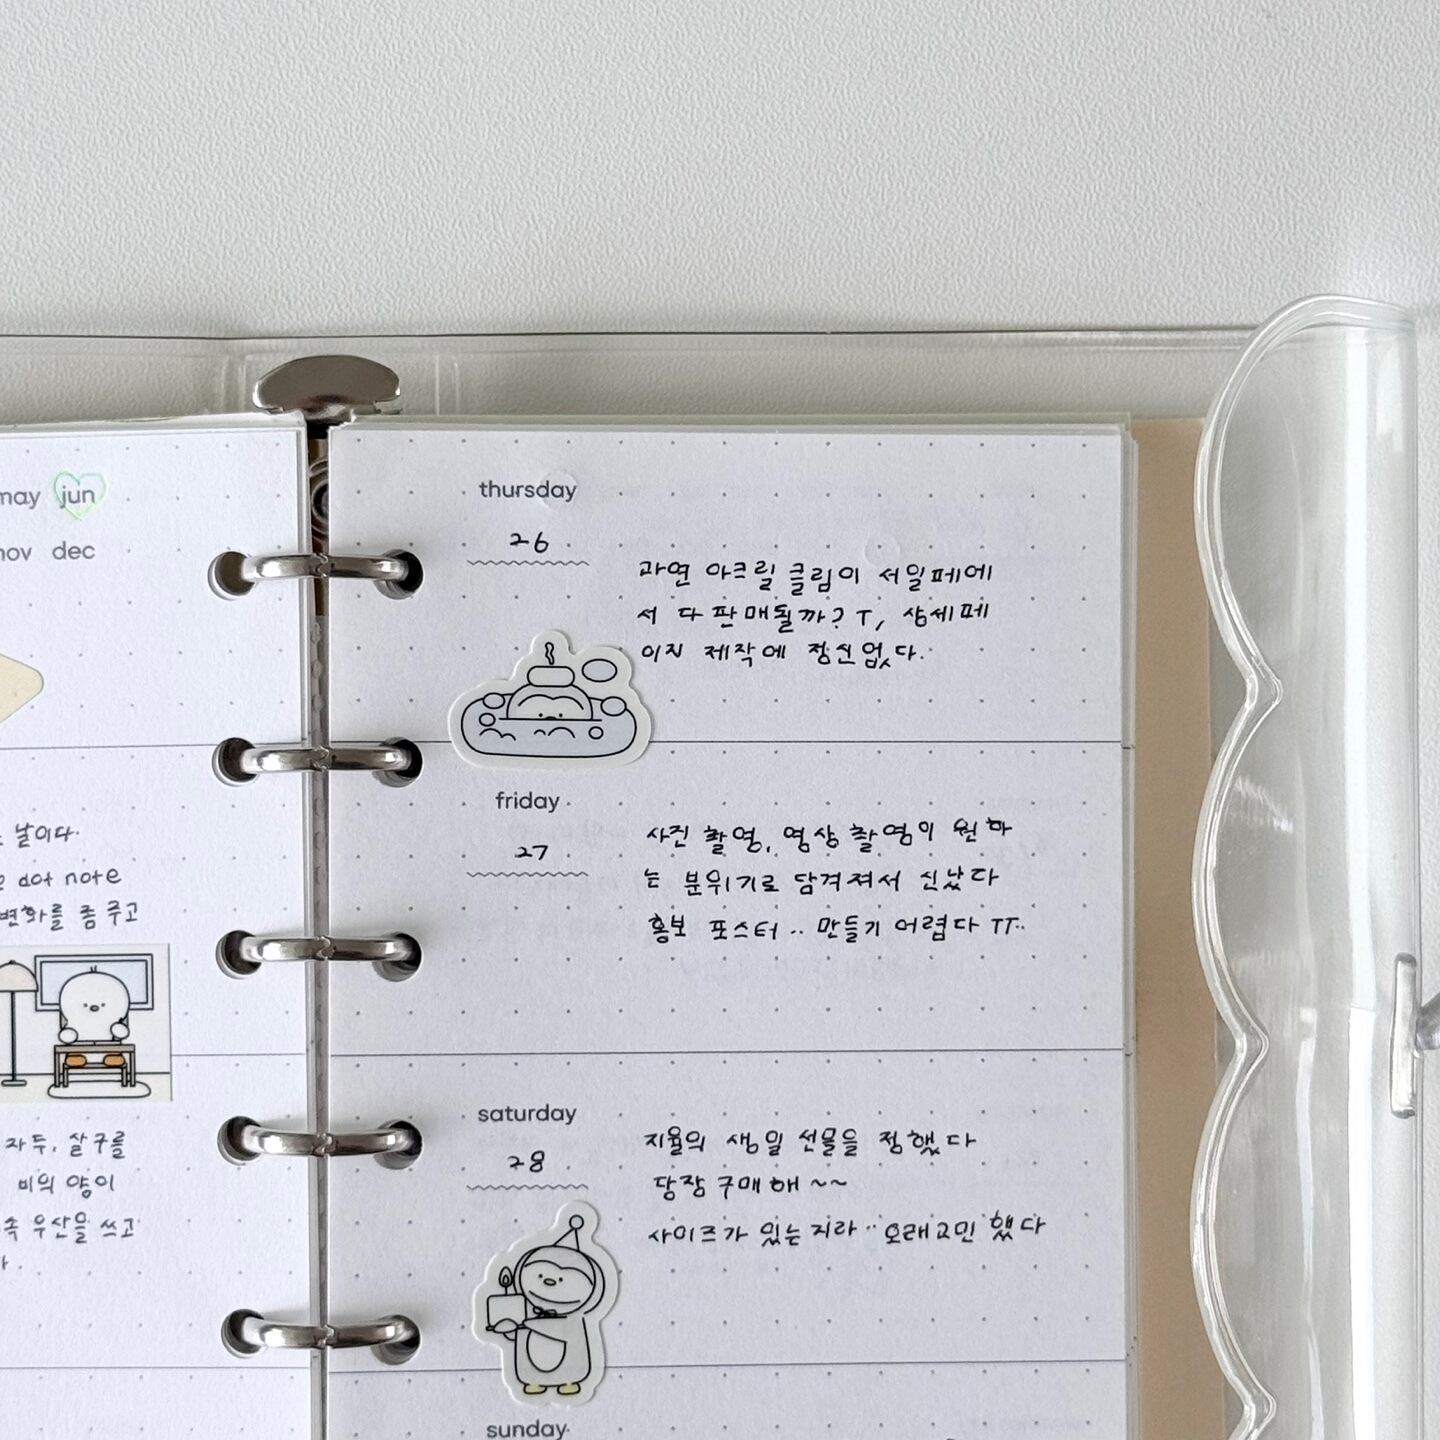 may jun
nov dec
날이다.
dot note
변화를 좀 주고
자두, 살구를
비의 양이
속 우산을 쓰고
thursday
26
과연 아크릴 클립이 서일페에
서 다 판매될까? T, 상세페
이지 제작에 정신없다.
friday
27
사진 촬영, 영상 촬영이 원하
는 분위기로 담겨져서 신났다
홍보 포스터.. 만들기 어렵다 TT..
saturday
28
지율의 생일 선물을 정했다
당장 구매해 ~~
사이즈가 있는지라.. 오래고민 했다
sunday